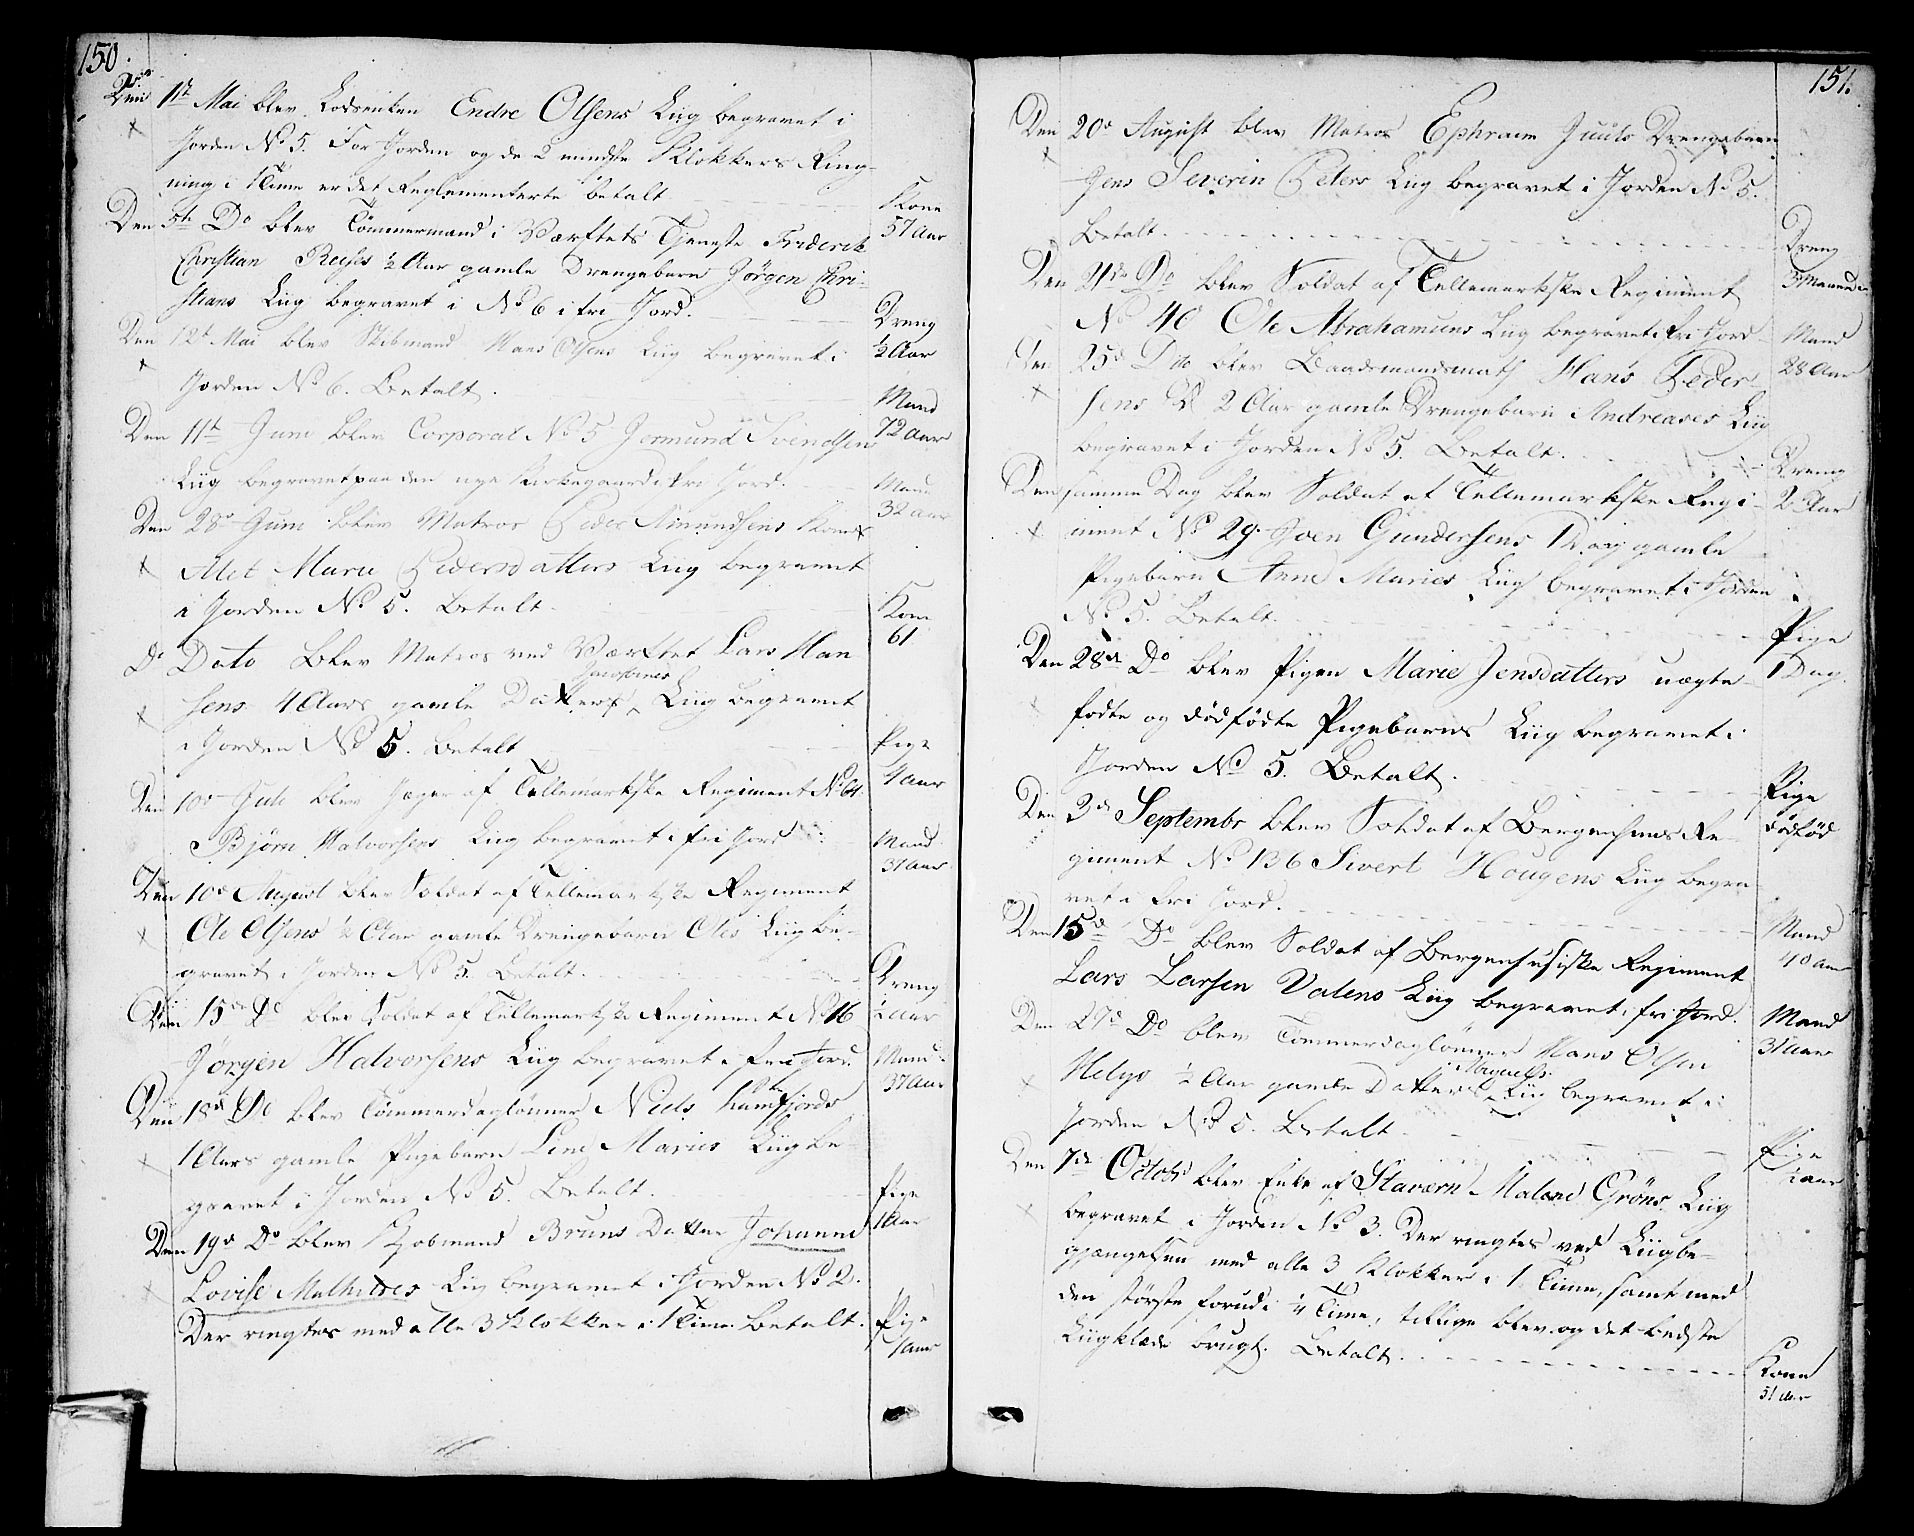 150.
Den 1te Mai blev Lodsenken Endre Olsens Liig begravet i
Jorden No 5. For Jorden og de 2 mindste Klokkers Ring-
ning i 1 Time er det Reglementerte betalt
Kone
57 Aar
Den 5te Do blev Tömmermand i Værftets Tjeneste Friderik
Christian Reeses ½ Aar gamle Drengebarn Jörgen Chri-
stians Liig begravet i No 6 i fri Jord.
Dreng
½ Aar
Den 12te Mai blev Skibmand Hans Olsens Liig begravet i
Jorden No 6. Betalt.
Mand
72 Aar
Den 11te Juni blev Corporal No 5 Jermund Svendsens
Liig begravet paa den nye Kirkegaard i fri Jord.
Mand
32 aar
Den 28de Juni blev Matros Peder Amundsens Kones
Alet Marie Pedersdatters Liig begravet
i Jorden No 5. Betalt.
Kone
61
Do Dato blev Matros ved Værftet Lars Han-
sens 4 Aars gamle Datters Jacobines Liig begravet
i Jorden No 5. Betalt
Pige
4 aar
Den 10de Juli blev Jæger af Tellemarkske Regiment No 61
Björn Halvorsens Liig begravet i fri Jord
Mand
31 aar
Den 10de August blev Soldat af Tellemarkske Regiment
Ole Olsens ½ Aar gamle Drengebarn Oles Liig be-
gravet i Jorden No 5. Betalt.
Dreng
½ aar
Den 15de Do blev Soldat af Tellemarkske Regiment No 16
Jörgen Halvorsens Liig begravet i fri Jord
Mand
37 aar
Den 18de Do blev Tömmerdaglönner Niels Lamfjords
1 Aars gamle Pigebarn Line Maries Liig be-
gravet i Jorden No 5. Betalt.
Pige
1 Aar
Den 19de Do blev Kjöbmand Bruns Datter Johanne
Lovise Mathildes Liig begravet i Jorden No 2.
Der ringtes med alle 3 Klokker i 1 Time. Betalt.
Pige
1 aar
151.
Den 20de August blev Matros Ephraim Juuls Drengebarn
Jens Severin Peters Liig begravet i Jorden No 5.
Betalt.
Dreng
3 Maaneder
Den 21de Do blev Soldat af Tellemarkske Regiment
No 40 Ole Abrahamsens Liig begravet i fri Jord
Mand
28 Aar
Den 25de Dito blev Baadsmandsmath Hans Peder-
sens 2 Aar gamle Drengebarn Andreases Liig
begravet i Jorden No 5. Betalt.
Dreng
2 Aar
Den samme Dag blev Soldat af Tellemarkske Regi-
ment No 29. Joen Gundersens 1 Dag gamle
Pigebarn Anne Maries Liig begravet i Jorden
No 5. Betalt.
Pige
1 Dag.
Den 28de Do blev Pigen Marie Jensdatters uægte
fødte og dödfödte Pigebarns Liig begravet i
Jorden No 5. Betalt.
Pige
dödföd
Den 3de Septembr blev Soldat af Bergenhuus Re-
giment No 136 Sivert Hougens Liig begra-
vet i fri Jord.
Mand
40 aar
Den 15de Do blev Soldat af Bergenhusiske Regiment
Lars Larsen Valens Liig begravet i fri Jord.
Mand
31 aar
Den 27de Do blev Tömmerdaglönner Hans Olsen
Helgs ½ Aar gamle Datters Liig begravet i
Jorden No 5. Betalt.
Pige
½ aar
Den 7de Octobr blev Enke af Stavern Malene Gröns Liig
begravet i Jorden No 3. Der ringtes ved Liigbe-
gjængelsen med alle 3 Klokker i 1 Time, samt med
den störste forud i ¼ Time, tillige blev og det bedste
Liigklæde brugt. Betalt.
Kone
51 aar